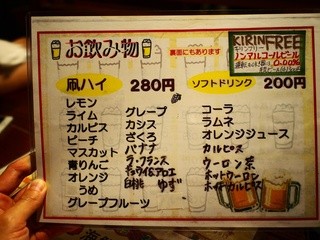 お飲み物
裏面にもあります
KIRIN FREE
キリンフリー
ノンアルコールビール
0.00%
凪ハイ 280円
レモン
ライム
カルピス
ピーチ
マスカット
青りんご
オレンジ
うめ
グレープフルーツ
グレープ
カシス
ざくろ
バナナ
ラ・フランス
キウイ&アロエ
白桃 ゆず
ソフトドリンク 200円
コーラ
ラムネ
オレンジジュース
カルピス
ウーロン茶
ホットウーロン
ホットカルピス